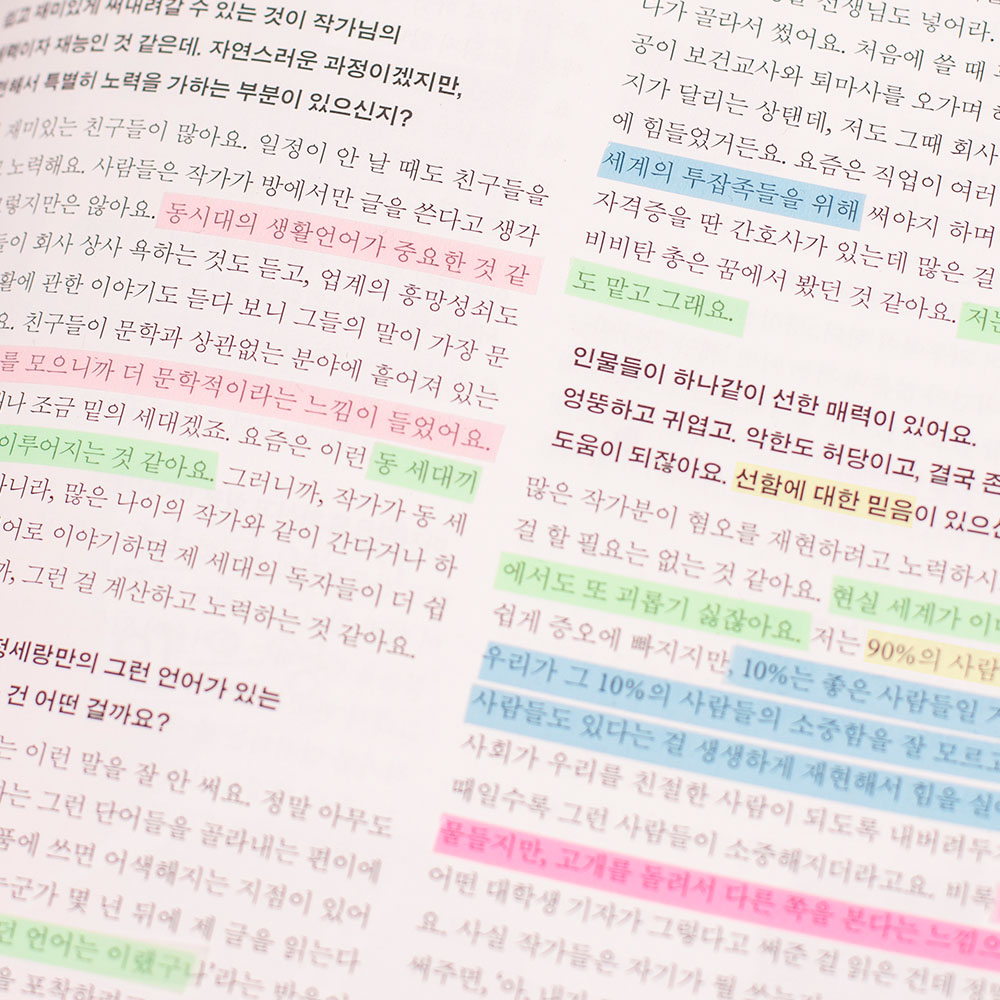 쉽고 재미있게 써내려갈 수 있는 것이 작가님의
매력이자 재능인 것 같은데. 자연스러운 과정이겠지만,
특별히 노력을 가하는 부분이 있으신지?
재미있는 친구들이 많아요. 일정이 안 날 때도 친구들을
노력해요. 사람들은 작가가 방에서만 글을 쓴다고 생각
그렇지만은 않아요. 동시대의 생활언어가 중요한 것 같
회사 상사 욕하는 것도 듣고, 업계의 흥망성쇠도
관한 이야기도 듣다 보니 그들의 말이 가장 문
친구들이 문학과 상관없는 분야에 흩어져 있는
를 모으니까 더 문학적이라는 느낌이 들었어요.
조금 밑의 세대겠죠. 요즘은 이런 동 세대끼
이루어지는 것 같아요. 그러니까, 작가가 동 세
많은 나이의 작가와 같이 간다거나 하
이야기하면 제 세대의 독자들이 더 쉽
그런 걸 계산하고 노력하는 것 같아요.
정세랑만의 그런 언어가 있는
건 어떤 걸까요?
이런 말을 잘 안 써요. 정말 아무도
그런 단어들을 골라내는 편이에
쓰면 어색해지는 지점이 있어
몇 년 뒤에 제 글을 읽는다
언어는 이랬구나’라는 반응이
선생님도 넣어라.
나가 골라서 썼어요. 처음에 쓸 때
공이 보건교사와 퇴마사를 오가며
지가 달리는 상탠데, 저도 그때 회사
에 힘들었거든요. 요즘은 직업이 여러
세계의 투잡족들을 위해 써야지 하며
자격증을 딴 간호사가 있는데 많은 걸
비비탄 총은 꿈에서 봤던 것 같아요. 저는
도 맡고 그래요.
인물들이 하나같이 선한 매력이 있어요.
엉뚱하고 귀엽고. 악한도 허당이고, 결국 존
도움이 되잖아요. 선함에 대한 믿음이 있으신
많은 작가분이 혐오를 재현하려고 노력하시
걸 할 필요는 없는 것 같아요. 현실 세계가
에서도 또 괴롭기 싫잖아요. 저는 90%의 사람
쉽게 증오에 빠지지만, 10%는 좋은 사람들일
우리가 그 10%의 사람들의 소중함을 잘 모르고
사람들도 있다는 걸 생생하게 재현해서 힘을
사회가 우리를 친절한 사람이 되도록 내버려두
때일수록 그런 사람들이 소중해지더라고요. 비록
물들지만, 고개를 돌려서 다른 쪽을 본다는 느낌으
어떤 대학생 기자가 그렇다고 써준 걸 읽은 건데
요. 사실 작가들은 자기가 뭘
써주면, ‘아,